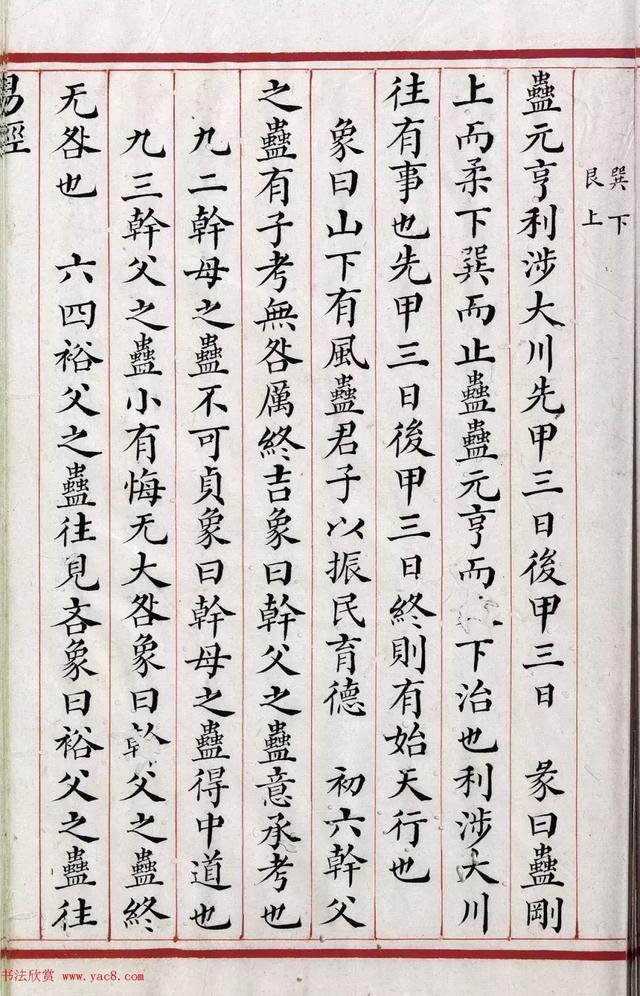 巽下
艮上
蠱元亨利涉大川先甲三日後甲三日　彖曰蠱剛
上而柔下巽而止蠱蠱元亨而下治也利涉大川
往有事也先甲三日後甲三日終則有始天行也
象曰山下有風蠱君子以振民育德　初六幹父
之蠱有子考無咎厲終吉象曰幹父之蠱意承考也
九二幹母之蠱不可貞象曰幹母之蠱得中道也
九三幹父之蠱小有悔无大咎象曰幹父之蠱終
无咎也　六四裕父之蠱往見吝象曰裕父之蠱往
易經
书法欣赏 www.yac8.com